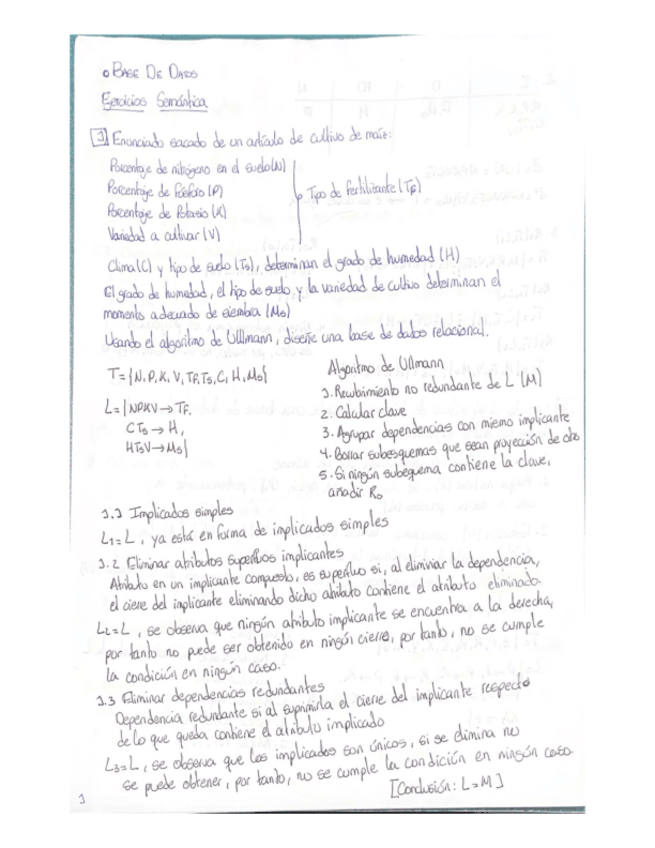 o BASE DE DATOS
Ejercicios Semántica
1 Enunciado sacado de un artículo de cultivo de maíz:
Porcentaje de nitrógeno en el suelo (N)
Porcentaje de fósforo (P)
Porcentaje de Potasio (K)
Variedad a cultivar (V)
Tipo de fertilizante (TF)
Clima (C) y tipo de suelo (Ts), determinan el grado de humedad (H)
El grado de humedad, el tipo de suelo y la variedad de cultivo determinan el
momento adecuado de siembra (Ms)
Usando el algoritmo de Ullmann, diseñe una base de datos relacional.
T = {N, P, K, V, TF, Ts, C, H, Ms}
L = {NPKV → TF,
CTs → H,
HTsV → Ms}
Algoritmo de Ullmann
1. Recubrimiento no redundante de L (M)
2. Calcular clave
3. Agrupar dependencias con mismo implicante
4. Borrar subesquemas que sean proyección de otro
5. Si ningún subesquema contiene la clave,
añadir Ro
1.1 Implicados simples
L1 = L, ya está en forma de implicados simples
1.2 Eliminar atributos superfluos implicantes
Atributo en un implicante compuesto, es superfluo si, al eliminar la dependencia,
el cierre del implicante eliminando dicho atributo contiene el atributo eliminado.
L2 = L, se observa que ningún atributo implicante se encuentra a la derecha,
por tanto no puede ser obtenido en ningún cierre, por tanto, no se cumple
la condición en ningún caso.
1.3 Eliminar dependencias redundantes
Dependencia redundante si al suprimirla el cierre del implicante respecto
de lo que queda contiene el atributo implicado
L3 = L, se observa que los implicados son únicos, si se elimina no
se puede obtener, por tanto, no se cumple la condición en ningún caso.
[Conclusión: L = M]
1